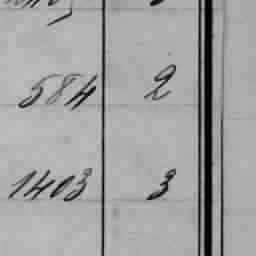 584 2
1403 3